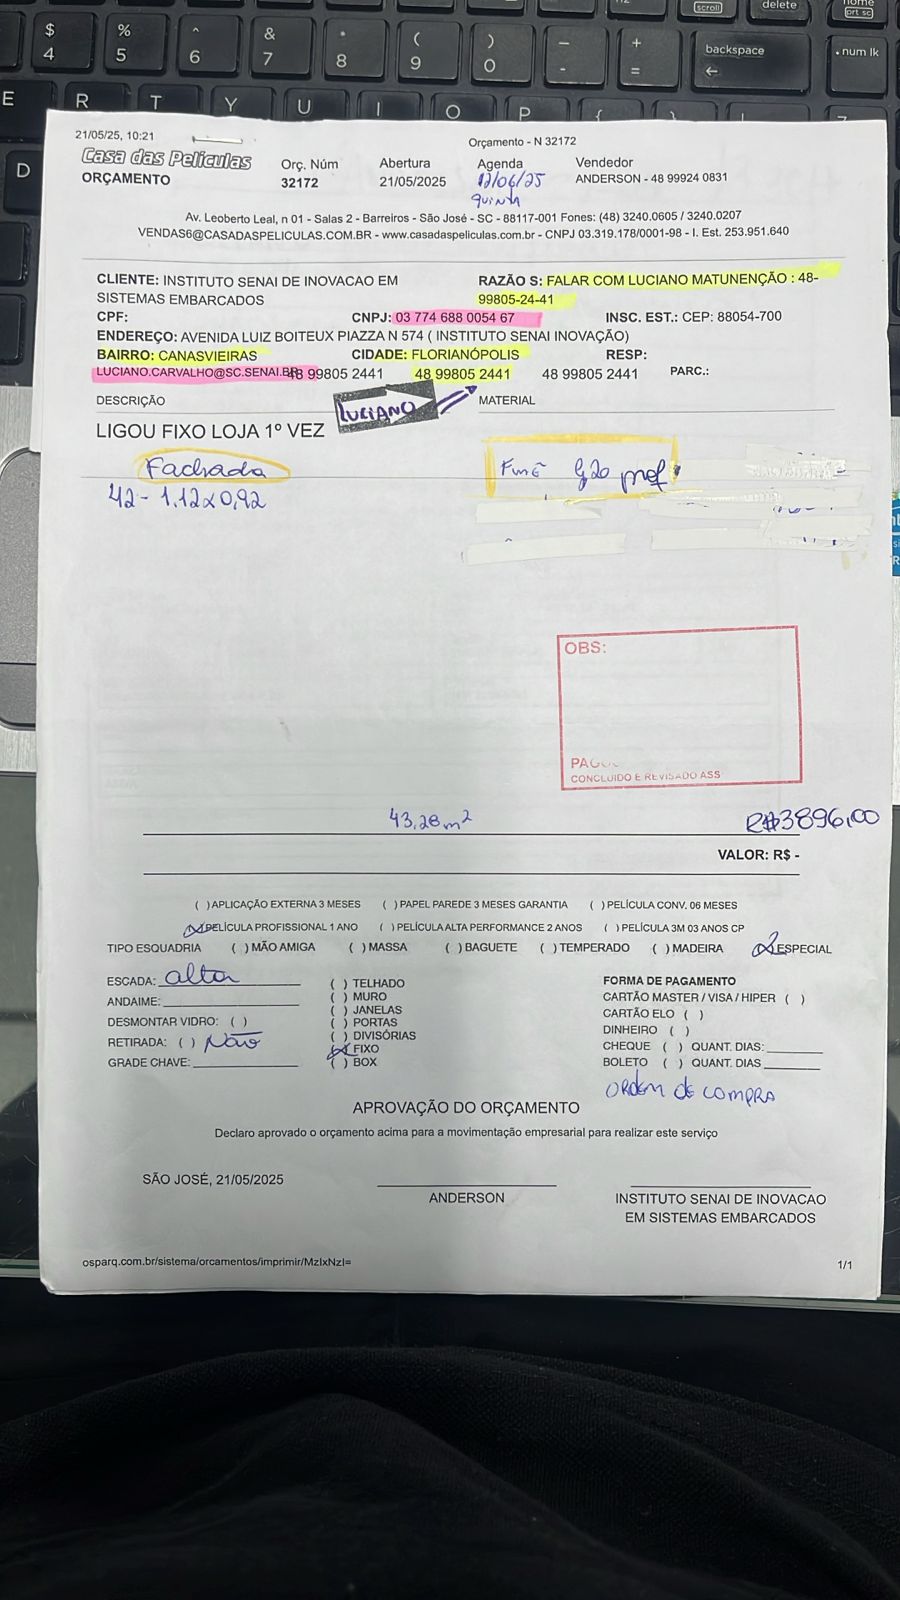 scroll
delete
home
prt sc
$
4
%
5
^
6
&
7
*
8
(
9
)
0
–
-
+
=
backspace
←
num lk
E R T Y U I O P {
D
21/05/25, 10:21
Orçamento - N 32172
Casa das Películas
ORÇAMENTO
Orç. Núm
32172
Abertura
21/05/2025
Agenda
12/06/25
quinta
Vendedor
ANDERSON - 48 99924 0831
Av. Leoberto Leal, n 01 - Salas 2 - Barreiros - São José - SC - 88117-001 Fones: (48) 3240.0605 / 3240.0207
VENDAS6@CASADASPELICULAS.COM.BR - www.casadaspeliculas.com.br - CNPJ 03.319.178/0001-98 - I. Est. 253.951.640
CLIENTE: INSTITUTO SENAI DE INOVACAO EM
SISTEMAS EMBARCADOS
RAZÃO S: FALAR COM LUCIANO MATUNENÇÃO : 48-
99805-24-41
CPF:
CNPJ: 03 774 688 0054 67
INSC. EST.: CEP: 88054-700
ENDEREÇO: AVENIDA LUIZ BOITEUX PIAZZA N 574 ( INSTITUTO SENAI INOVAÇÃO)
BAIRRO: CANASVIEIRAS
CIDADE: FLORIANÓPOLIS
RESP:
LUCIANO.CARVALHO@SC.SENAI.BR
48 99805 2441
48 99805 2441
48 99805 2441
PARC.:
DESCRIÇÃO
LUCIANO
MATERIAL
LIGOU FIXO LOJA 1º VEZ
Fachada
Fumê G20 prof
42 - 1,12x0,92
OBS:
CONCLUIDO E REVISADO ASS
43,28 m²
R$3896,00
VALOR: R$ -
( ) APLICAÇÃO EXTERNA 3 MESES ( ) PAPEL PAREDE 3 MESES GARANTIA ( ) PELÍCULA CONV. 06 MESES
(X) PELÍCULA PROFISSIONAL 1 ANO ( ) PELÍCULA ALTA PERFORMANCE 2 ANOS ( ) PELÍCULA 3M 03 ANOS CP
TIPO ESQUADRIA ( ) MÃO AMIGA ( ) MASSA ( ) BAGUETE ( ) TEMPERADO ( ) MADEIRA (X) ESPECIAL
ESCADA: alta
ANDAIME:
DESMONTAR VIDRO: ( )
RETIRADA: ( ) Não
GRADE CHAVE:
( ) TELHADO
( ) MURO
( ) JANELAS
( ) PORTAS
( ) DIVISÓRIAS
(X) FIXO
( ) BOX
FORMA DE PAGAMENTO
CARTÃO MASTER / VISA / HIPER ( )
CARTÃO ELO ( )
DINHEIRO ( )
CHEQUE ( ) QUANT. DIAS:
BOLETO ( ) QUANT. DIAS
ORdem de COMPRA
APROVAÇÃO DO ORÇAMENTO
Declaro aprovado o orçamento acima para a movimentação empresarial para realizar este serviço
SÃO JOSÉ, 21/05/2025
ANDERSON
INSTITUTO SENAI DE INOVACAO
EM SISTEMAS EMBARCADOS
osparq.com.br/sistema/orcamentos/imprimir/MzIxNzI=
1/1